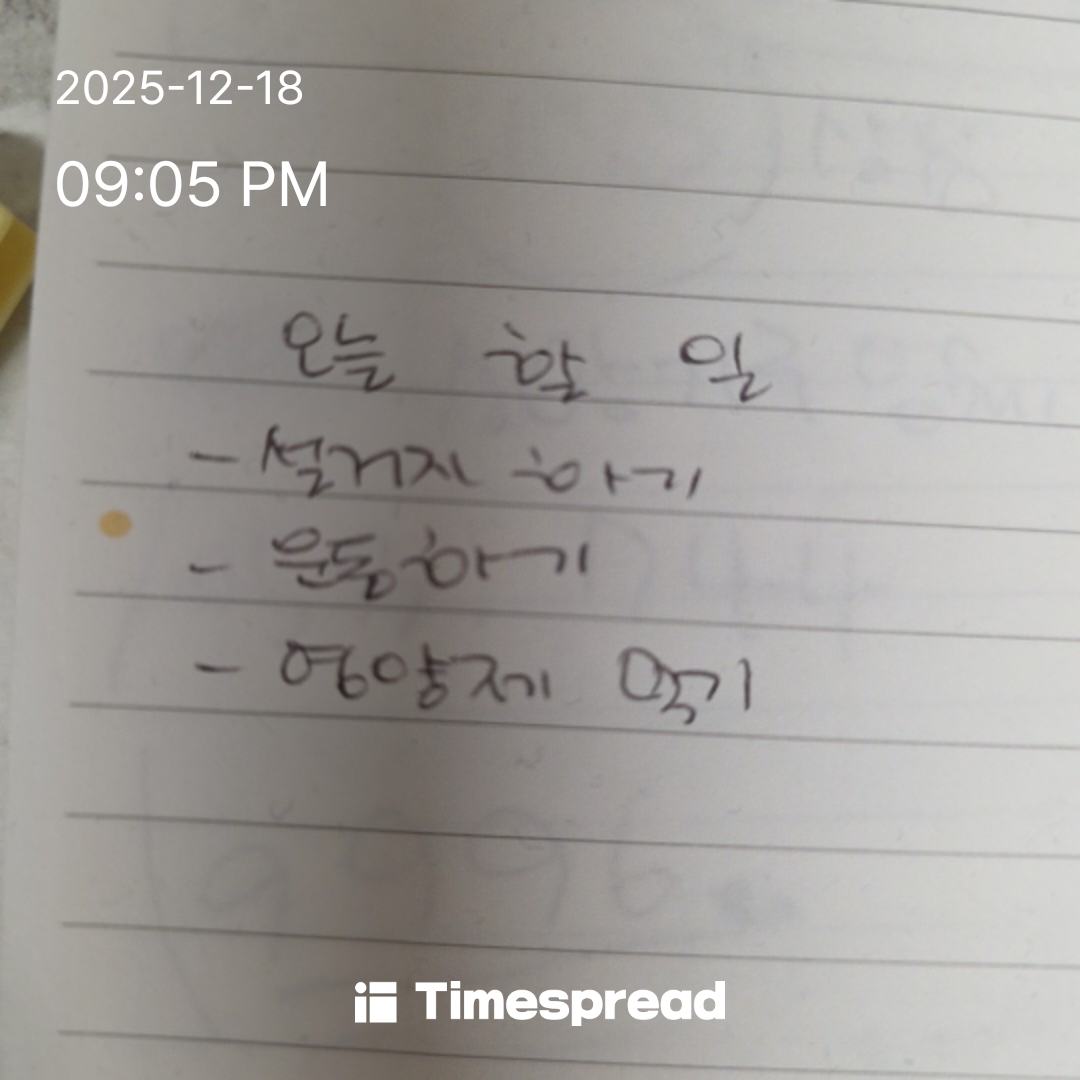 2025-12-18
09:05 PM
오늘 할 일
- 설거지 하기
- 운동하기
- 영양제 먹기
Timespread